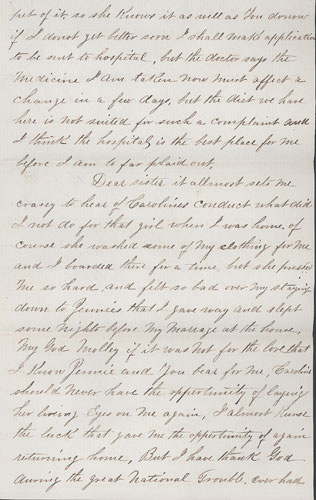 pet of it, so she knows it as well as You donow
if I donot get better soon I shall make application
to be sent to hospital, but the doctor says the
Medicine I am taken now must affect a
change in a few days, but the diet we have
here is not suited for such a complaint and
I think the hospital is the best place for me
before I am to far plaid out,
Dear sister it allmost sets me
crasy to hear of Carolines conduct what did
I not do for that girl when I was home, of
course she washed some of My clothing for Me
and I boarded there for a time, but she pressed
Me so hard, and felt so bad over My staying
down to Jennies that I gave way and slept
some Nights before My Marrage at the house,
My God Molley if it was not for the love that
I Know Jennie and You bear for Me, Caroline
should Never have the opportunity of laying
her loving Eyes on Me again, I almost Kurse
the luck that gave Me the opportunity of again
returning home, But I have thank God
during the great National Trouble, ever had